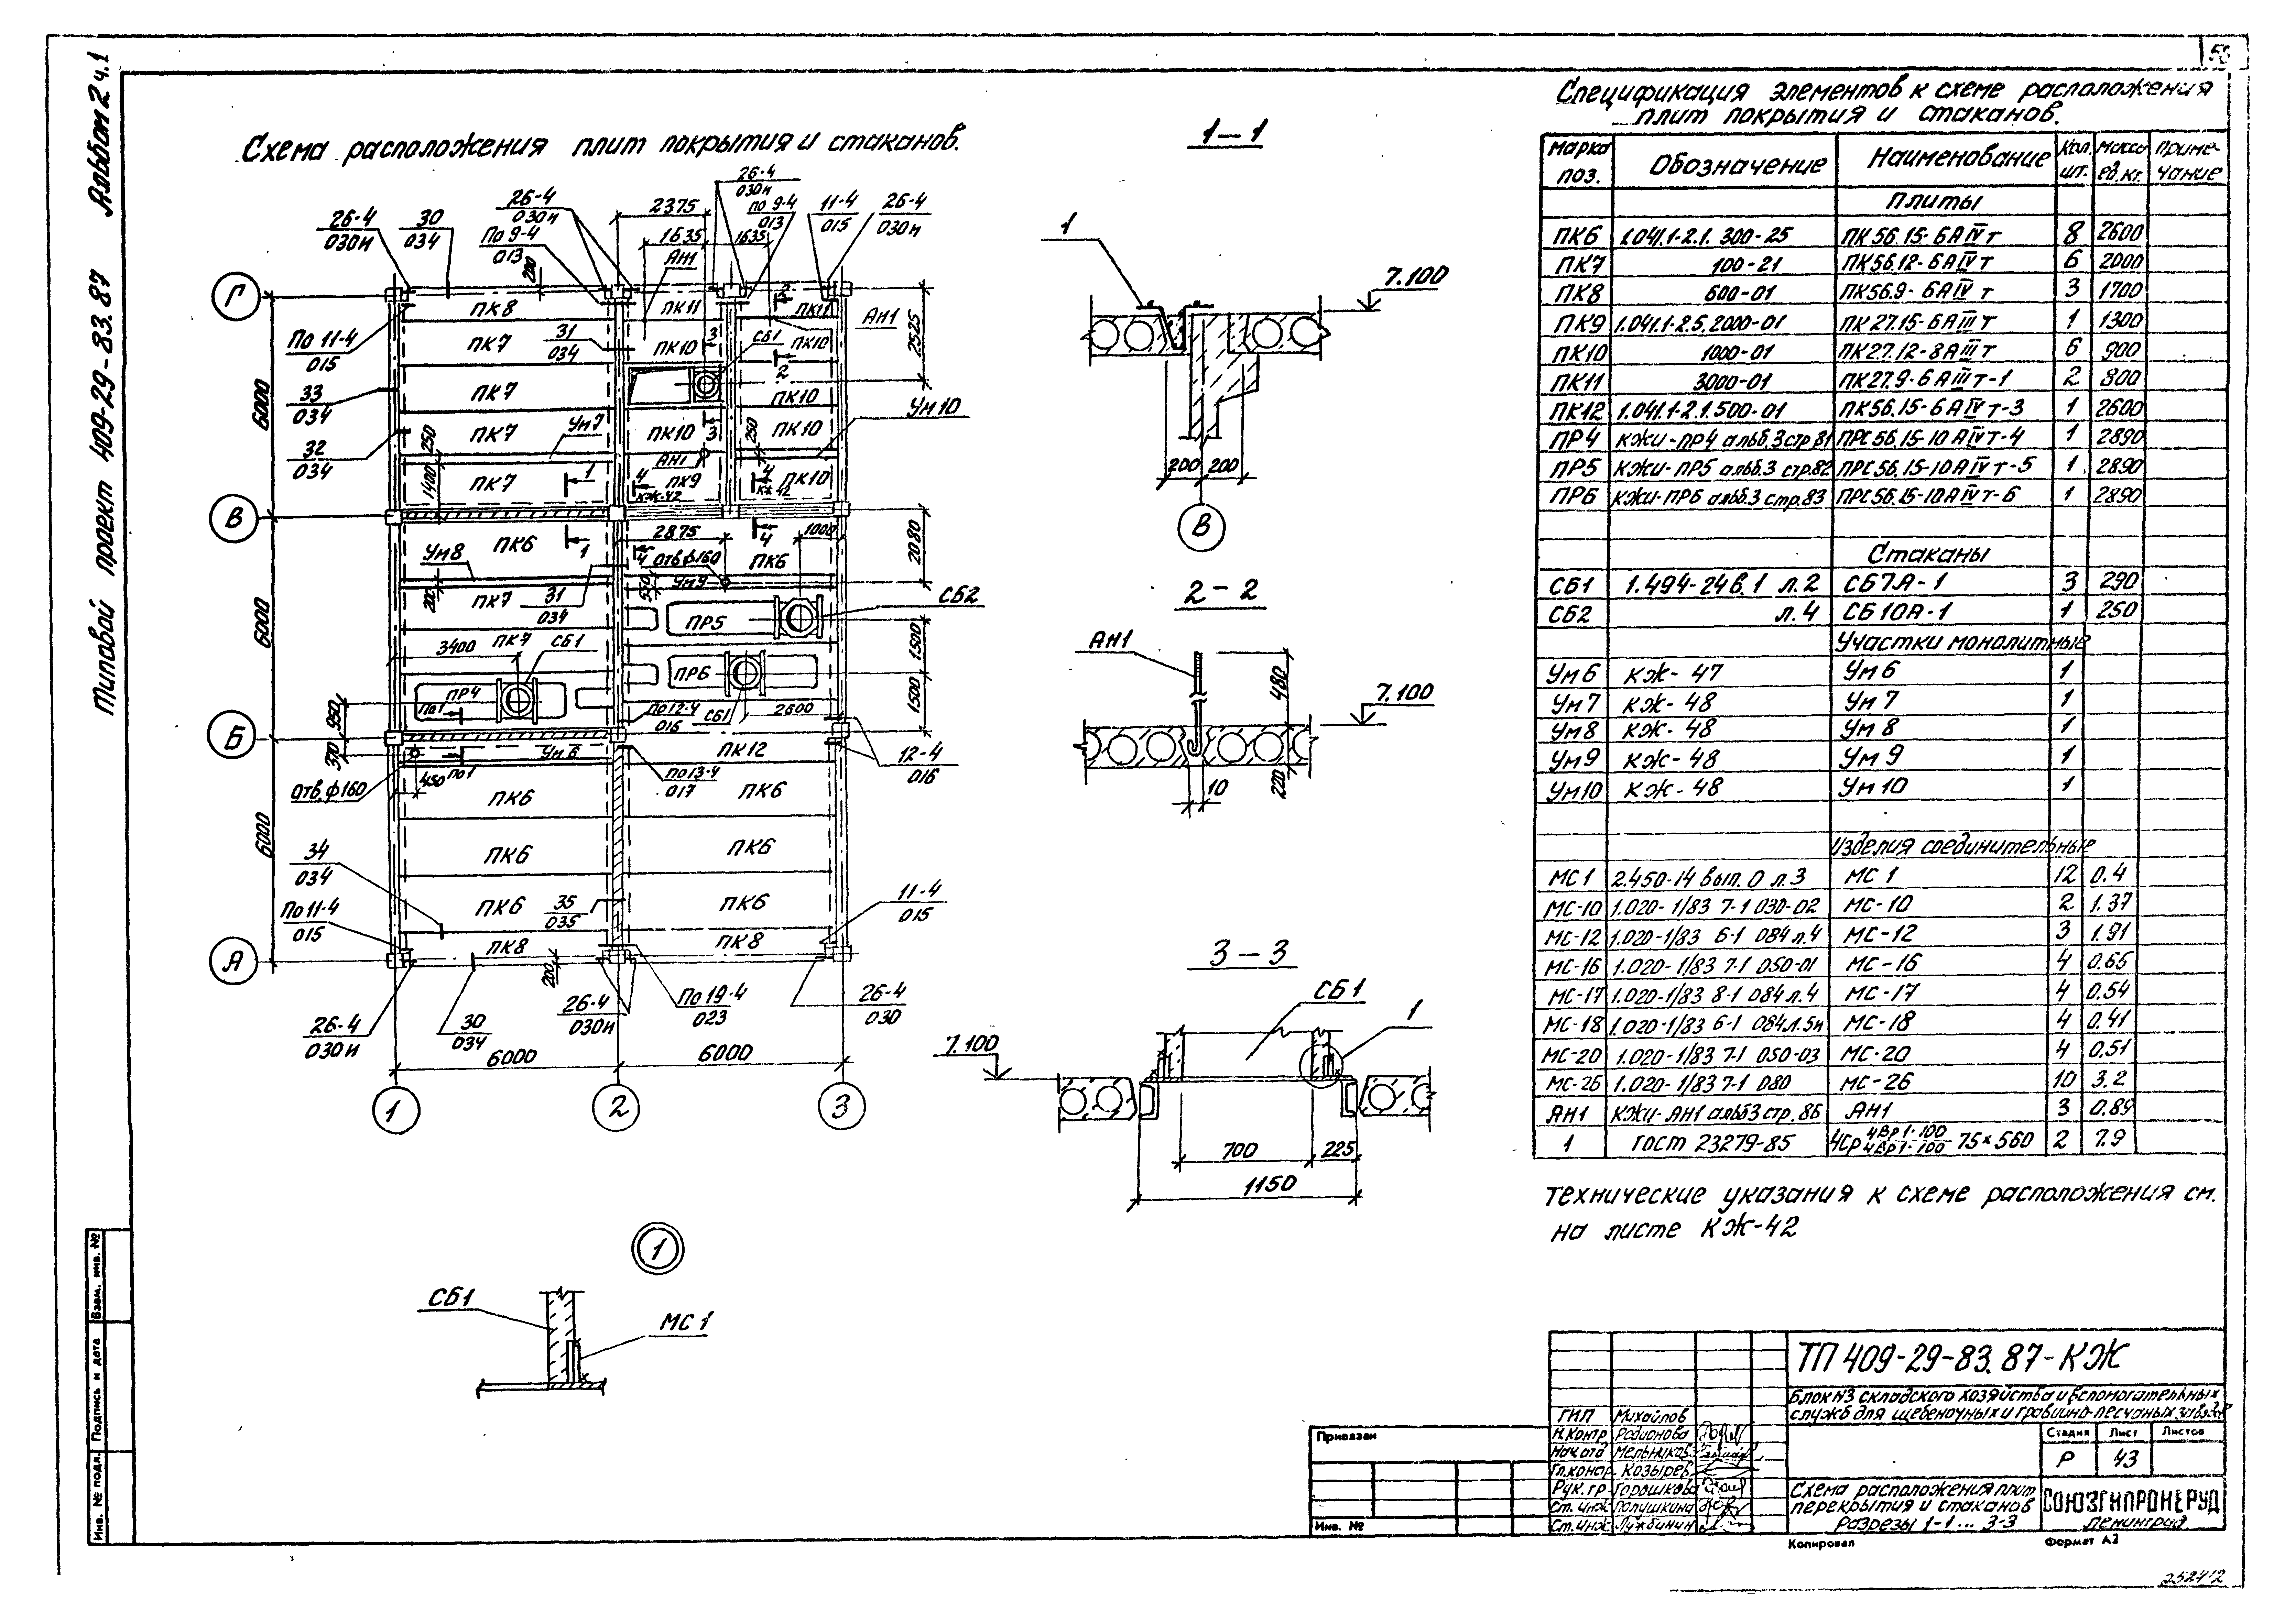 50
Альбом 2 ч.1
Типовой проект 409-29-83.87
Схема расположения плит покрытия и стаканов.
26-4
030и
30
034
26-4
030и
По 9-4
013
2375
26-4
030и
по 9-4
013
11-4
015
26-4
030и
1635
1635
АН1
200
Г
ПК8
ПК11
ПК11
2
АН1
2525
По 11-4
015
ПК7
31
034
ПК10
3
СБ1
ПК10
2
33
034
6000
ПК7
ПК10
Ум10
32
034
250
ПК7
Ум7
ПК10
3
250
ПК10
АН1
1400
ПК7
1
4
КЖ-42
ПК9
4
КЖ-42
ПК10
В
ПК6
1
2875
4
4
1000
2080
Ум8
Отв.ф160
ПК6
200
ПК7
31
034
550
Ум9
6000
СБ2
ПК7
СБ1
3400
ПР5
1500
ПР4
ПР6
1500
950
По1
По12-4
016
СБ1
2600
Б
370
Ум6
ПК12
12-4
016
Отв.ф160
450
по1
по13-4
017
ПК6
ПК6
6000
34
034
ПК6
ПК6
По11-4
015
ПК6
35
035
ПК6
11-4
015
А
ПК8
200
ПК8
26-4
030и
30
034
26-4
030и
По 19-4
023
26-4
030
6000
6000
1
2
3
1
СБ1
МС1
1-1
1
7.100
200
200
В
2-2
АН1
480
7.100
220
10
3-3
СБ1
1
7.100
700
225
1150
Спецификация элементов к схеме расположения
плит покрытия и стаканов.
Марка поз. Обозначение Наименование Кол. шт. Масса ед.кг. Примечание
Плиты
ПК6 1.041.1-2.1. 300-25 ПК56.15-6АIVт 8 2600
ПК7 100-21 ПК56.12-6АIVт 6 2000
ПК8 600-01 ПК56.9-6АIVт 3 1700
ПК9 1.041.1-2.5.2000-01 ПК27.15-6АIIIт 1 1300
ПК10 1000-01 ПК27.12-8АIIIт 6 900
ПК11 3000-01 ПК27.9-6АIIIт-1 2 800
ПК12 1.041.1-2.1.500-01 ПК56.15-6АIVт-3 1 2600
ПР4 КЖИ-ПР4 альб.3 стр.81 ПРС56.15-10АIVт-4 1 2890
ПР5 КЖИ-ПР5 альб.3 стр.82 ПРС56.15-10АIVт-5 1 2890
ПР6 КЖИ-ПР6 альб.3 стр.83 ПРС56.15-10АIVт-6 1 2890
Стаканы
СБ1 1.494-24в.1 л.2 СБ7А-1 3 290
СБ2 л.4 СБ10А-1 1 250
Участки монолитные
Ум6 КЖ-47 Ум6 1
Ум7 КЖ-48 Ум7 1
Ум8 КЖ-48 Ум8 1
Ум9 КЖ-48 Ум9 1
Ум10 КЖ-48 Ум10 1
Изделия соединительные
МС1 2.450-14 вып.0 л.3 МС1 12 0.4
МС-10 1.020-1/83 7-1 030-02 МС-10 2 1.37
МС-12 1.020-1/83 6-1 084л.4 МС-12 3 1.91
МС-16 1.020-1/83 7-1 050-01 МС-16 4 0.65
МС-17 1.020-1/83 8-1 084л.4 МС-17 4 0.54
МС-18 1.020-1/83 6-1 084л.5и МС-18 4 0.41
МС-20 1.020-1/83 7-1 050-03 МС-20 4 0.51
МС-26 1.020-1/83 7-1 080 МС-26 10 3.2
АН1 КЖИ-АН1 альб3 стр.86 АН1 3 0.89
1 ГОСТ 23279-85 4Ср 4Вр1-100 / 4Вр1-100 75×560 2 7.9
Технические указания к схеме расположения см.
на листе КЖ-42
Инв. № подл. Подпись и дата Взам. инв. №
Привязан
Инв. №
ТП 409-29-83.87-КЖ
Блок №3 складского хозяйства и вспомогательных
служб для щебеночных и гравийно-песчаных заводов
ГИП Михайлов
Н.контр Родионова
Нач.отд Мельников
Гл.констр Козырев
Рук.гр Горошков
Ст.инж Полушкина
Ст.инж Лужбинин
Стадия Лист Листов
Р 43
Схема расположения плит
перекрытия и стаканов
Разрезы 1-1 ... 3-3
СОЮЗГИПРОНЕРУД
Ленинград
Копировал
Формат А2